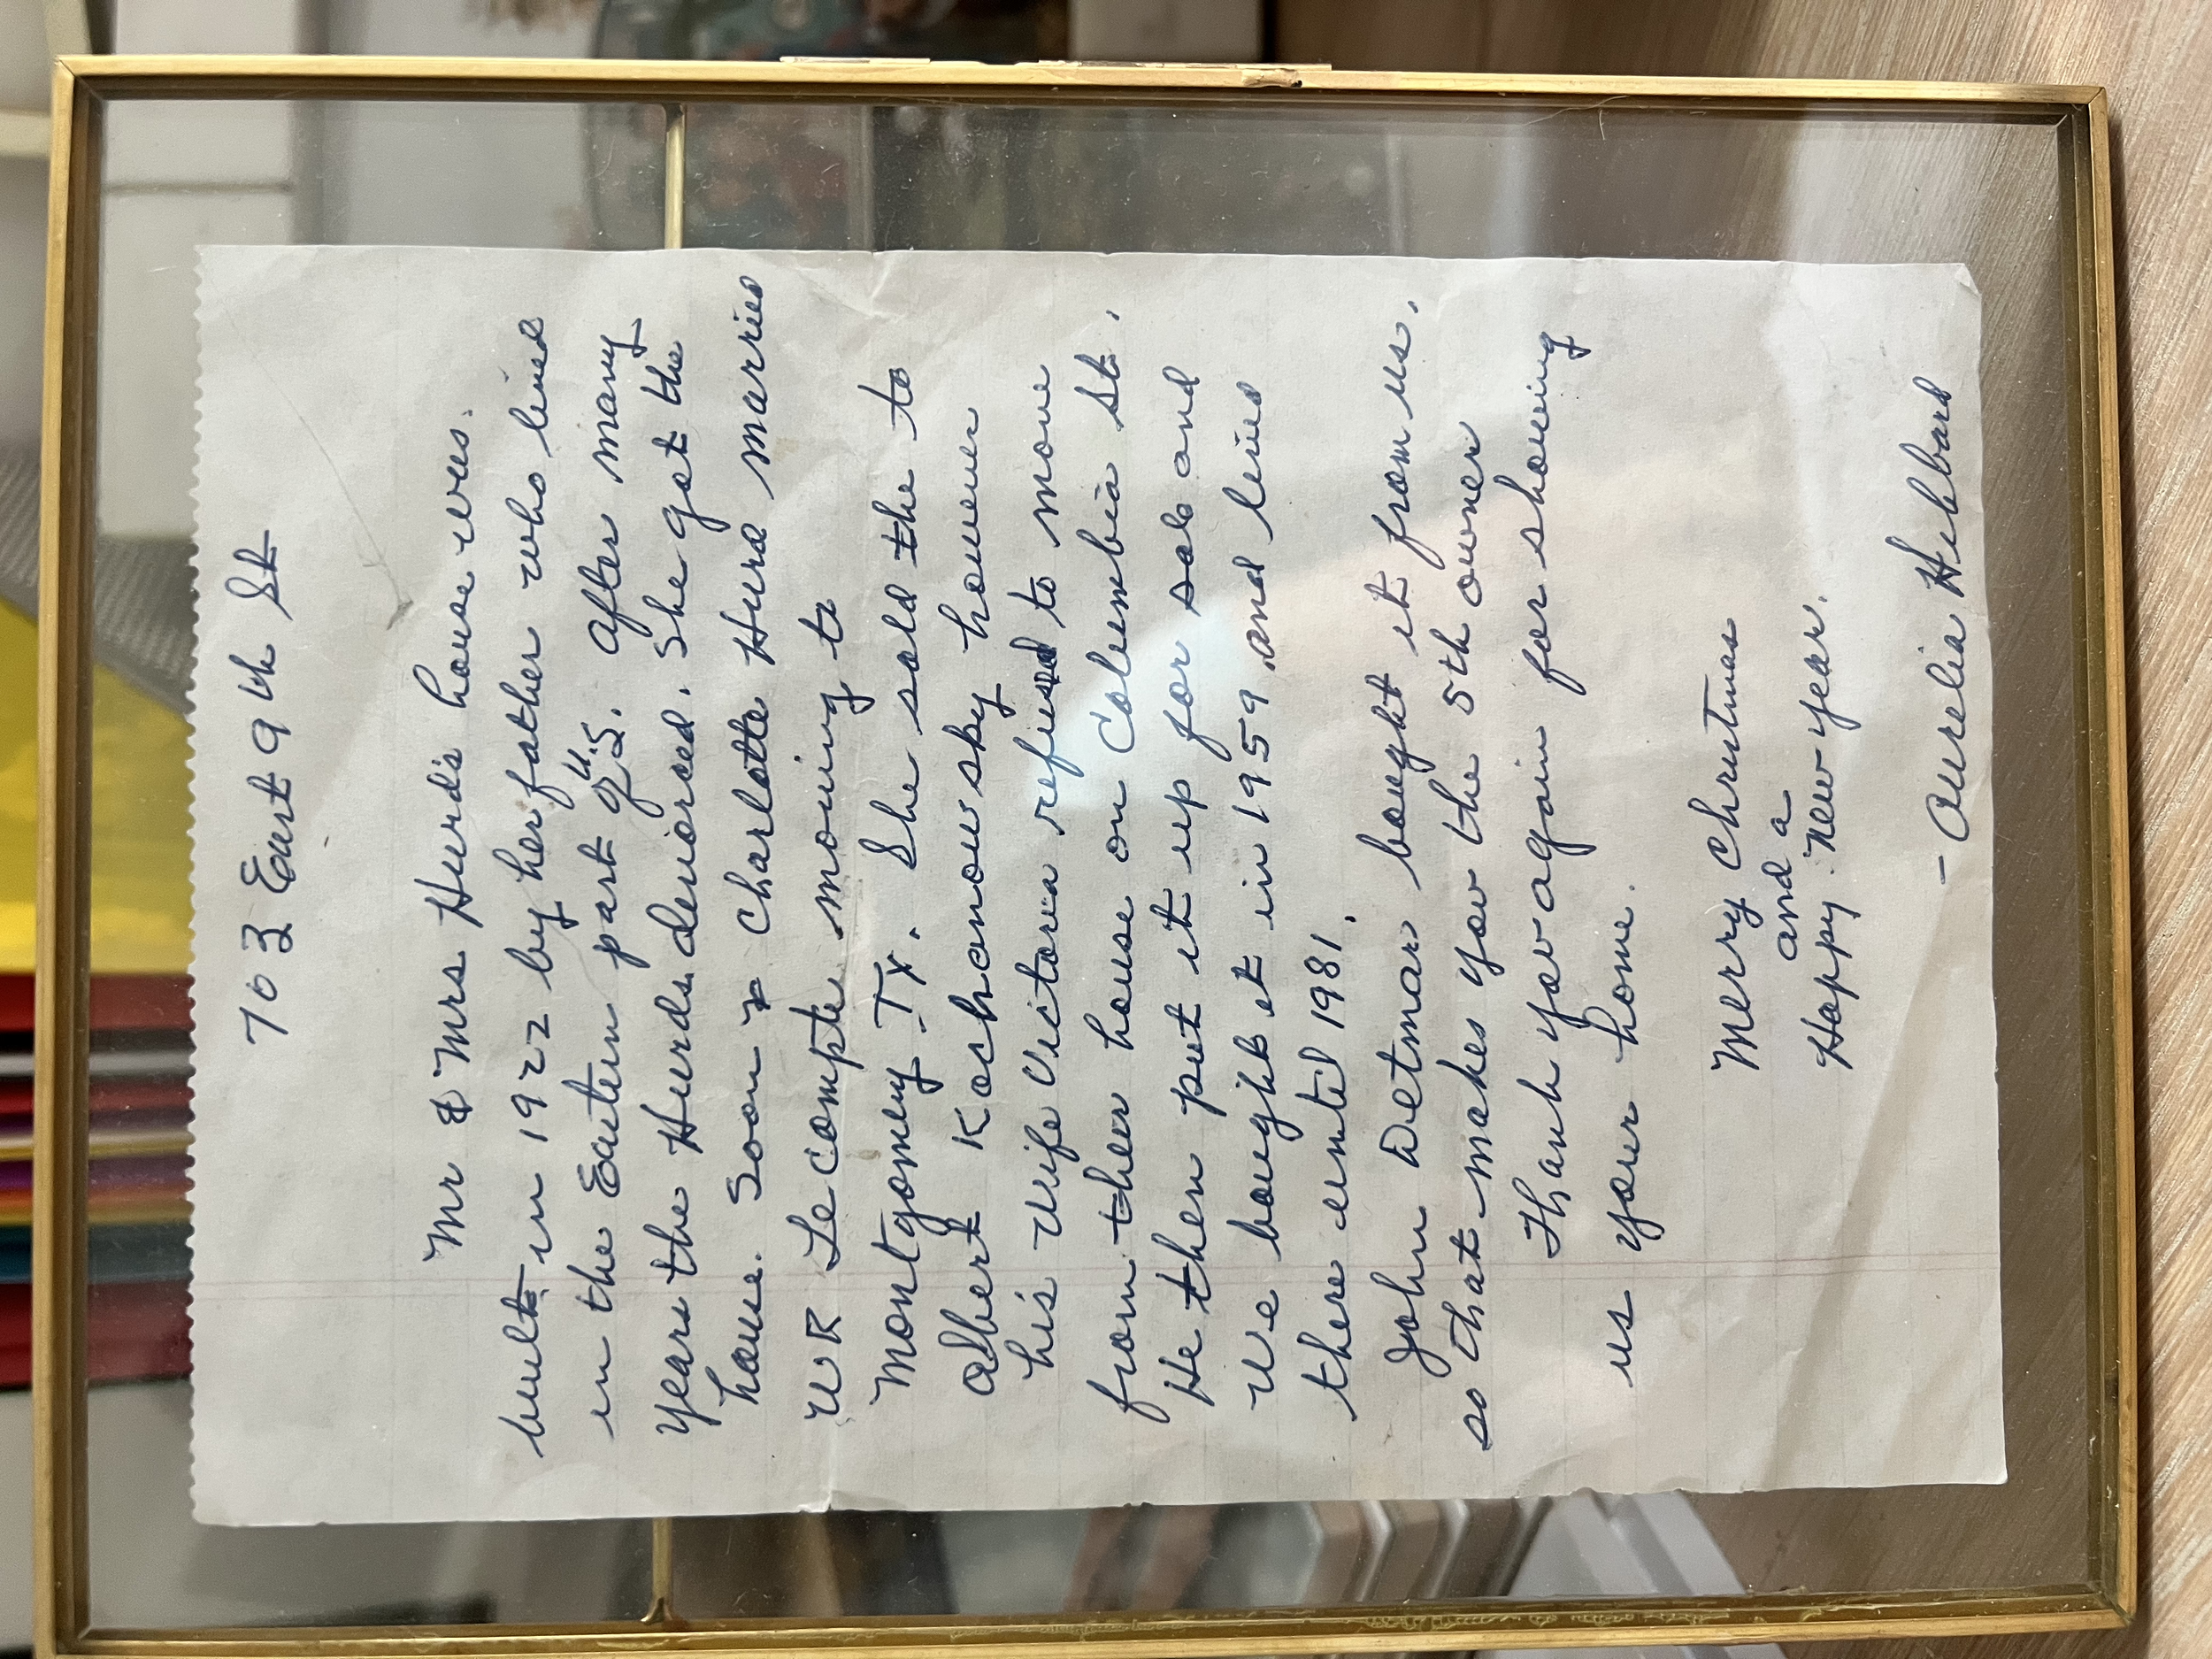 703 East 9th St
Mr & Mrs Hurd's house was.
built in 1922 by her father who lived
in the Eastern part of U.S. After many
years the Hurds divorced. She got the
house. Soon Charlotte Hurd married
WR Lecompte moving to
Montgomery TX. She sold the to
Albert Kochanowsky however
his wife Victoria refused to move
from their house on Columbia St.
He then put it up for sale and
we bought it in 1959 and lived
there until 1981.
John Detmar bought it from us.
so that makes you the 5th owner
Thank you again for showing
us your home.
Merry Christmas
and a
Happy New Year.
- Aurelia Hebbard